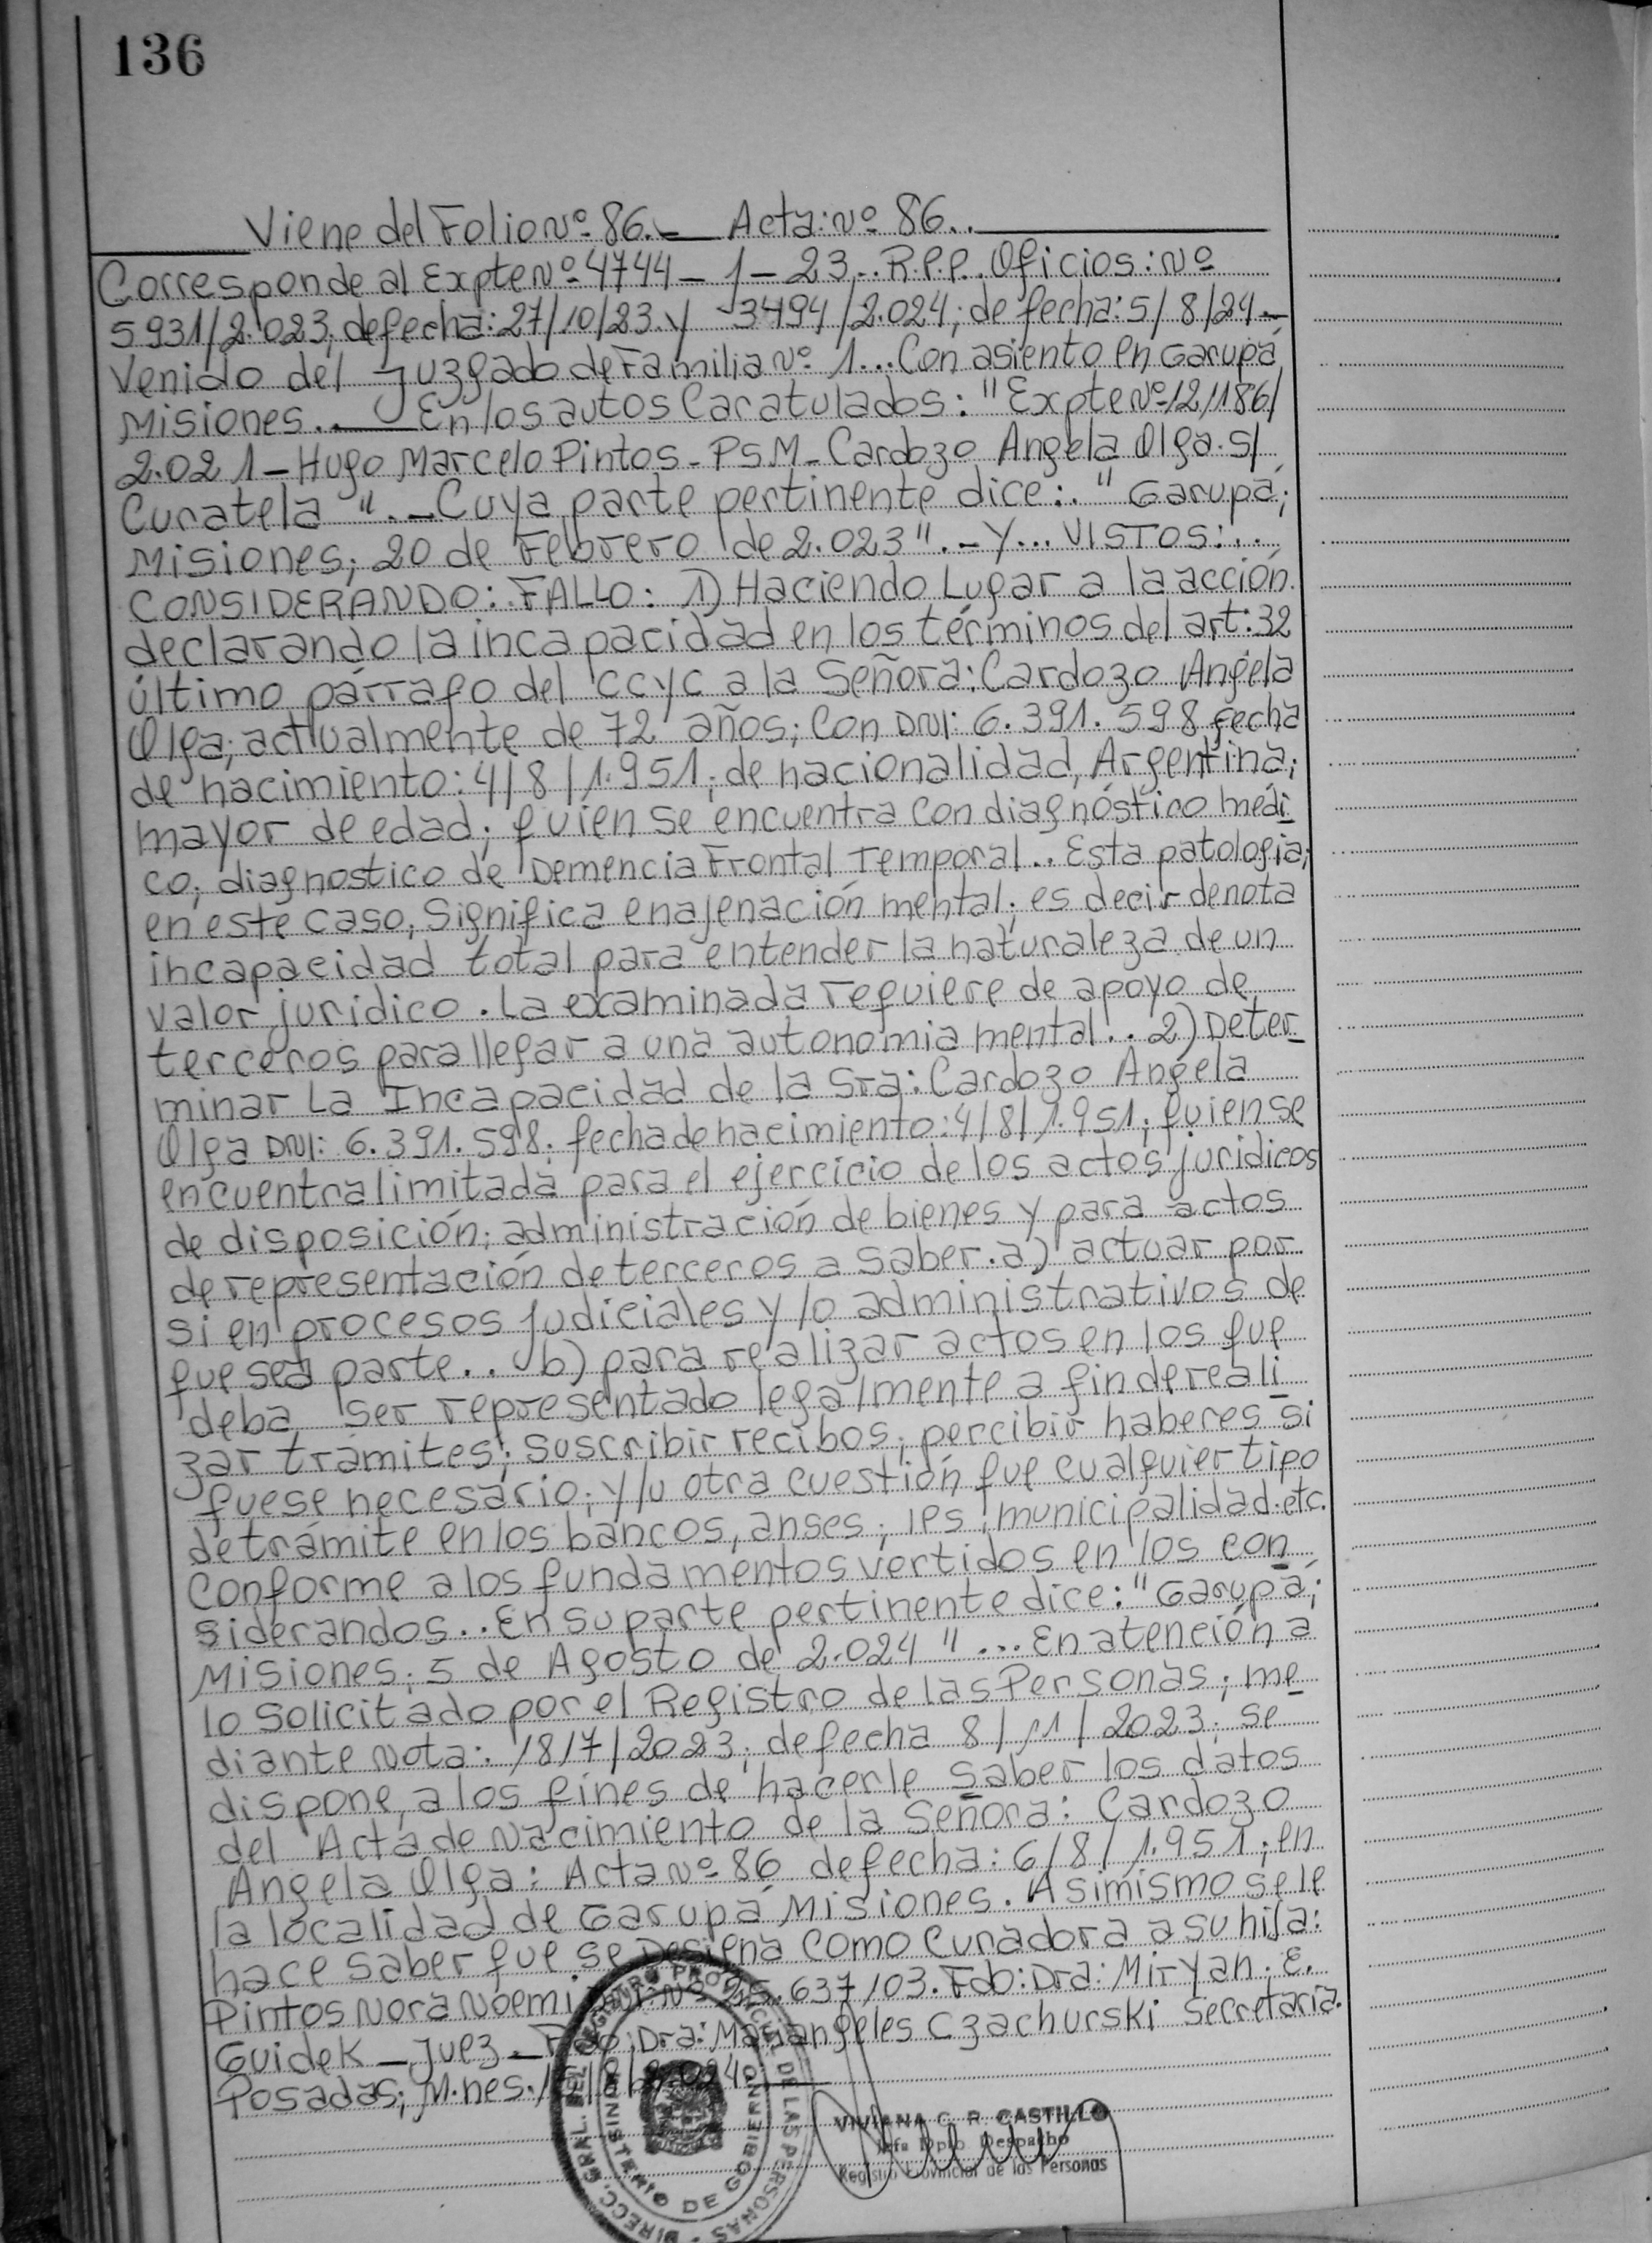 136
Viene del Folio Nº 86.- Acta: Nº 86..
Corresponde al Expte Nº 4744-1-23.. R.P.P. Oficios: Nº
5931/2.023; de fecha: 27/10/23. y 3494/2.024; de fecha: 5/8/24.-
Venido del Juzgado de Familia Nº 1... Con asiento en Garupá
Misiones.. En los autos Caratulados: "Expte Nº 121186/
2.021 - Hugo Marcelo Pintos - PSM - Cardozo Angela Olga. S/
Curatela". - Cuya parte pertinente dice:. "Garupá;
Misiones; 20 de Febrero de 2.023". - Y... VISTOS:..
CONSIDERANDO:. FALLO: 1) Haciendo Lugar a la acción.
declarando la incapacidad en los términos del art: 32
último párrafo del CCYC a la Señora: Cardozo Angela
Olga; actualmente de 72 años; Con DNI: 6.391.598 fecha
de nacimiento: 4/8/1.951; de nacionalidad, Argentina;
mayor de edad; quien se encuentra con diagnóstico médi
co; diagnostico de Demencia Frontal Temporal.. Esta patología;
en este caso, Significa enajenación mental; es decir denota
incapacidad total para entender la naturaleza de un
valor jurídico. La examinada requiere de apoyo de
terceros para llegar a una autonomia mental.. 2) Deter-
minar La Incapacidad de la Sra: Cardozo Angela
Olga DNI: 6.391.598; fecha de nacimiento: 4/8/1.951; quien se
encuentra limitada para el ejercicio de los actos jurídicos
de disposición; administración de bienes y para actos
de representación de terceros a saber. a) actuar por
si en procesos judiciales y/o administrativos de
que sea parte.. b) para realizar actos en los que
deba ser representado legalmente a fin de reali
zar trámites; suscribir recibos; percibir haberes si
fuese necesario; y/u otra cuestión que cualquier tipo
de trámite en los bancos, anses; ips; municipalidad. etc.
Conforme a los fundamentos vertidos en los con
siderandos.. En su parte pertinente dice: "Garupá;
Misiones; 5 de Agosto de 2.024"... En atención a
lo solicitado por el Registro de las Personas; me
diante Nota: 1817/2023; de fecha 8/11/2023; se
dispone, a los fines de hacerle saber los datos
del Acta de Nacimiento de la Señora: Cardozo
Angela Olga: Acta Nº 86 de fecha: 6/8/1.951; en
la localidad de Garupá Misiones. Asimismo se le
hace saber que se Designa Como Curadora a su hija:
Pintos Nora Noemi Nº 25.637103. Fdo: Dra: Miryan. E.
Guidek - Juez - Fdo: Dra: Mariangeles Czachurski Secretaria.
Posadas; M.nes.
DIRECC. GRAL. DEL REGISTRO PROVINCIAL DE LAS PERSONAS
MINISTERIO DE GOBIERNO
VIVIANA C. R. CASTILLO
Jefa Dpto Despacho
Registro Provincial de las Personas